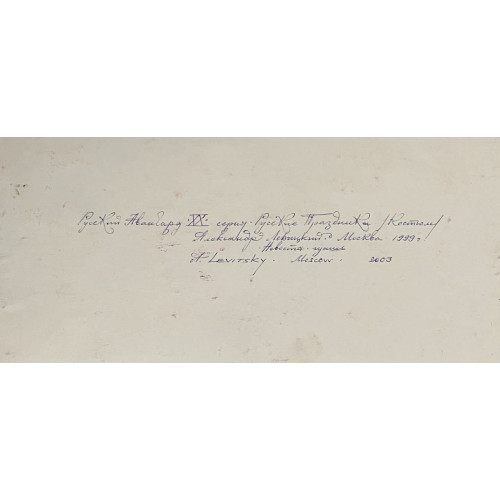 Русский Авангард XX. серия. Русские Праздники /Костюм/
Александр Левицкий. Москва 1999 г
A. Levitsky. Moscow. 2003